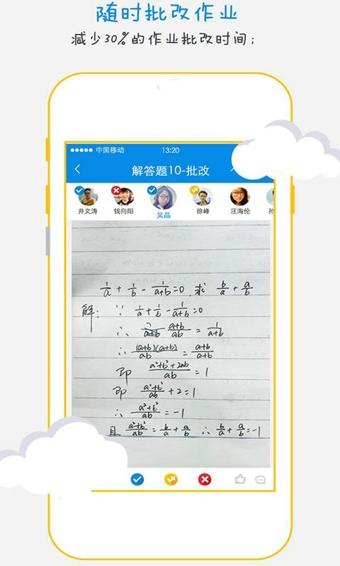 随时批改作业
减少30%的作业批改时间;
中国移动 13:20
解答题10-批改
井文涛 钱向阳 吴晶 徐峰 汪海伦
1/a + 1/b - 1/(a+b) = 0 求 b/a + a/b
解: ∵ 1/a + 1/b - 1/(a+b) = 0
∴ (a+b)/ab = 1/(a+b)
∴ (a+b)(a+b)/ab = (a+b)/(a+b)
即 (a²+b²+2ab)/ab = 1
即 (a²+b²)/ab + 2 = 1
∴ (a²+b²)/ab = -1
且 (a²+b²)/ab = b/a + a/b ∴ b/a + a/b = -1